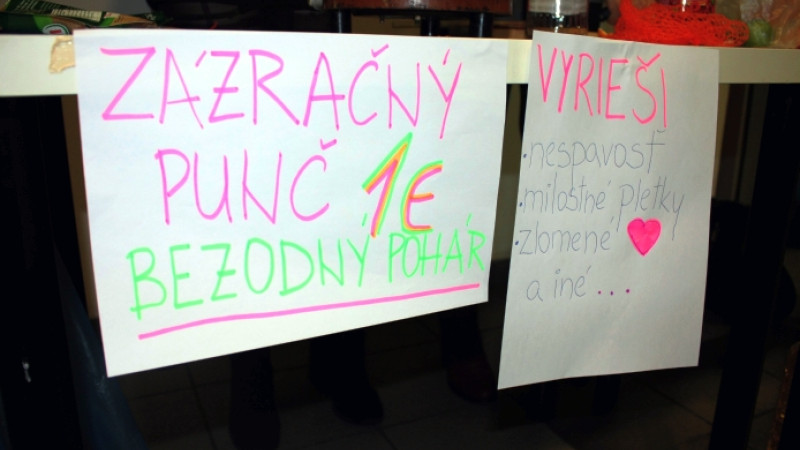 ZÁZRAČNÝ
PUNČ 1€
BEZODNÝ POHÁR
VYRIEŠI
• nespavosť
• milostné pletky
• zlomené ♥
a iné...